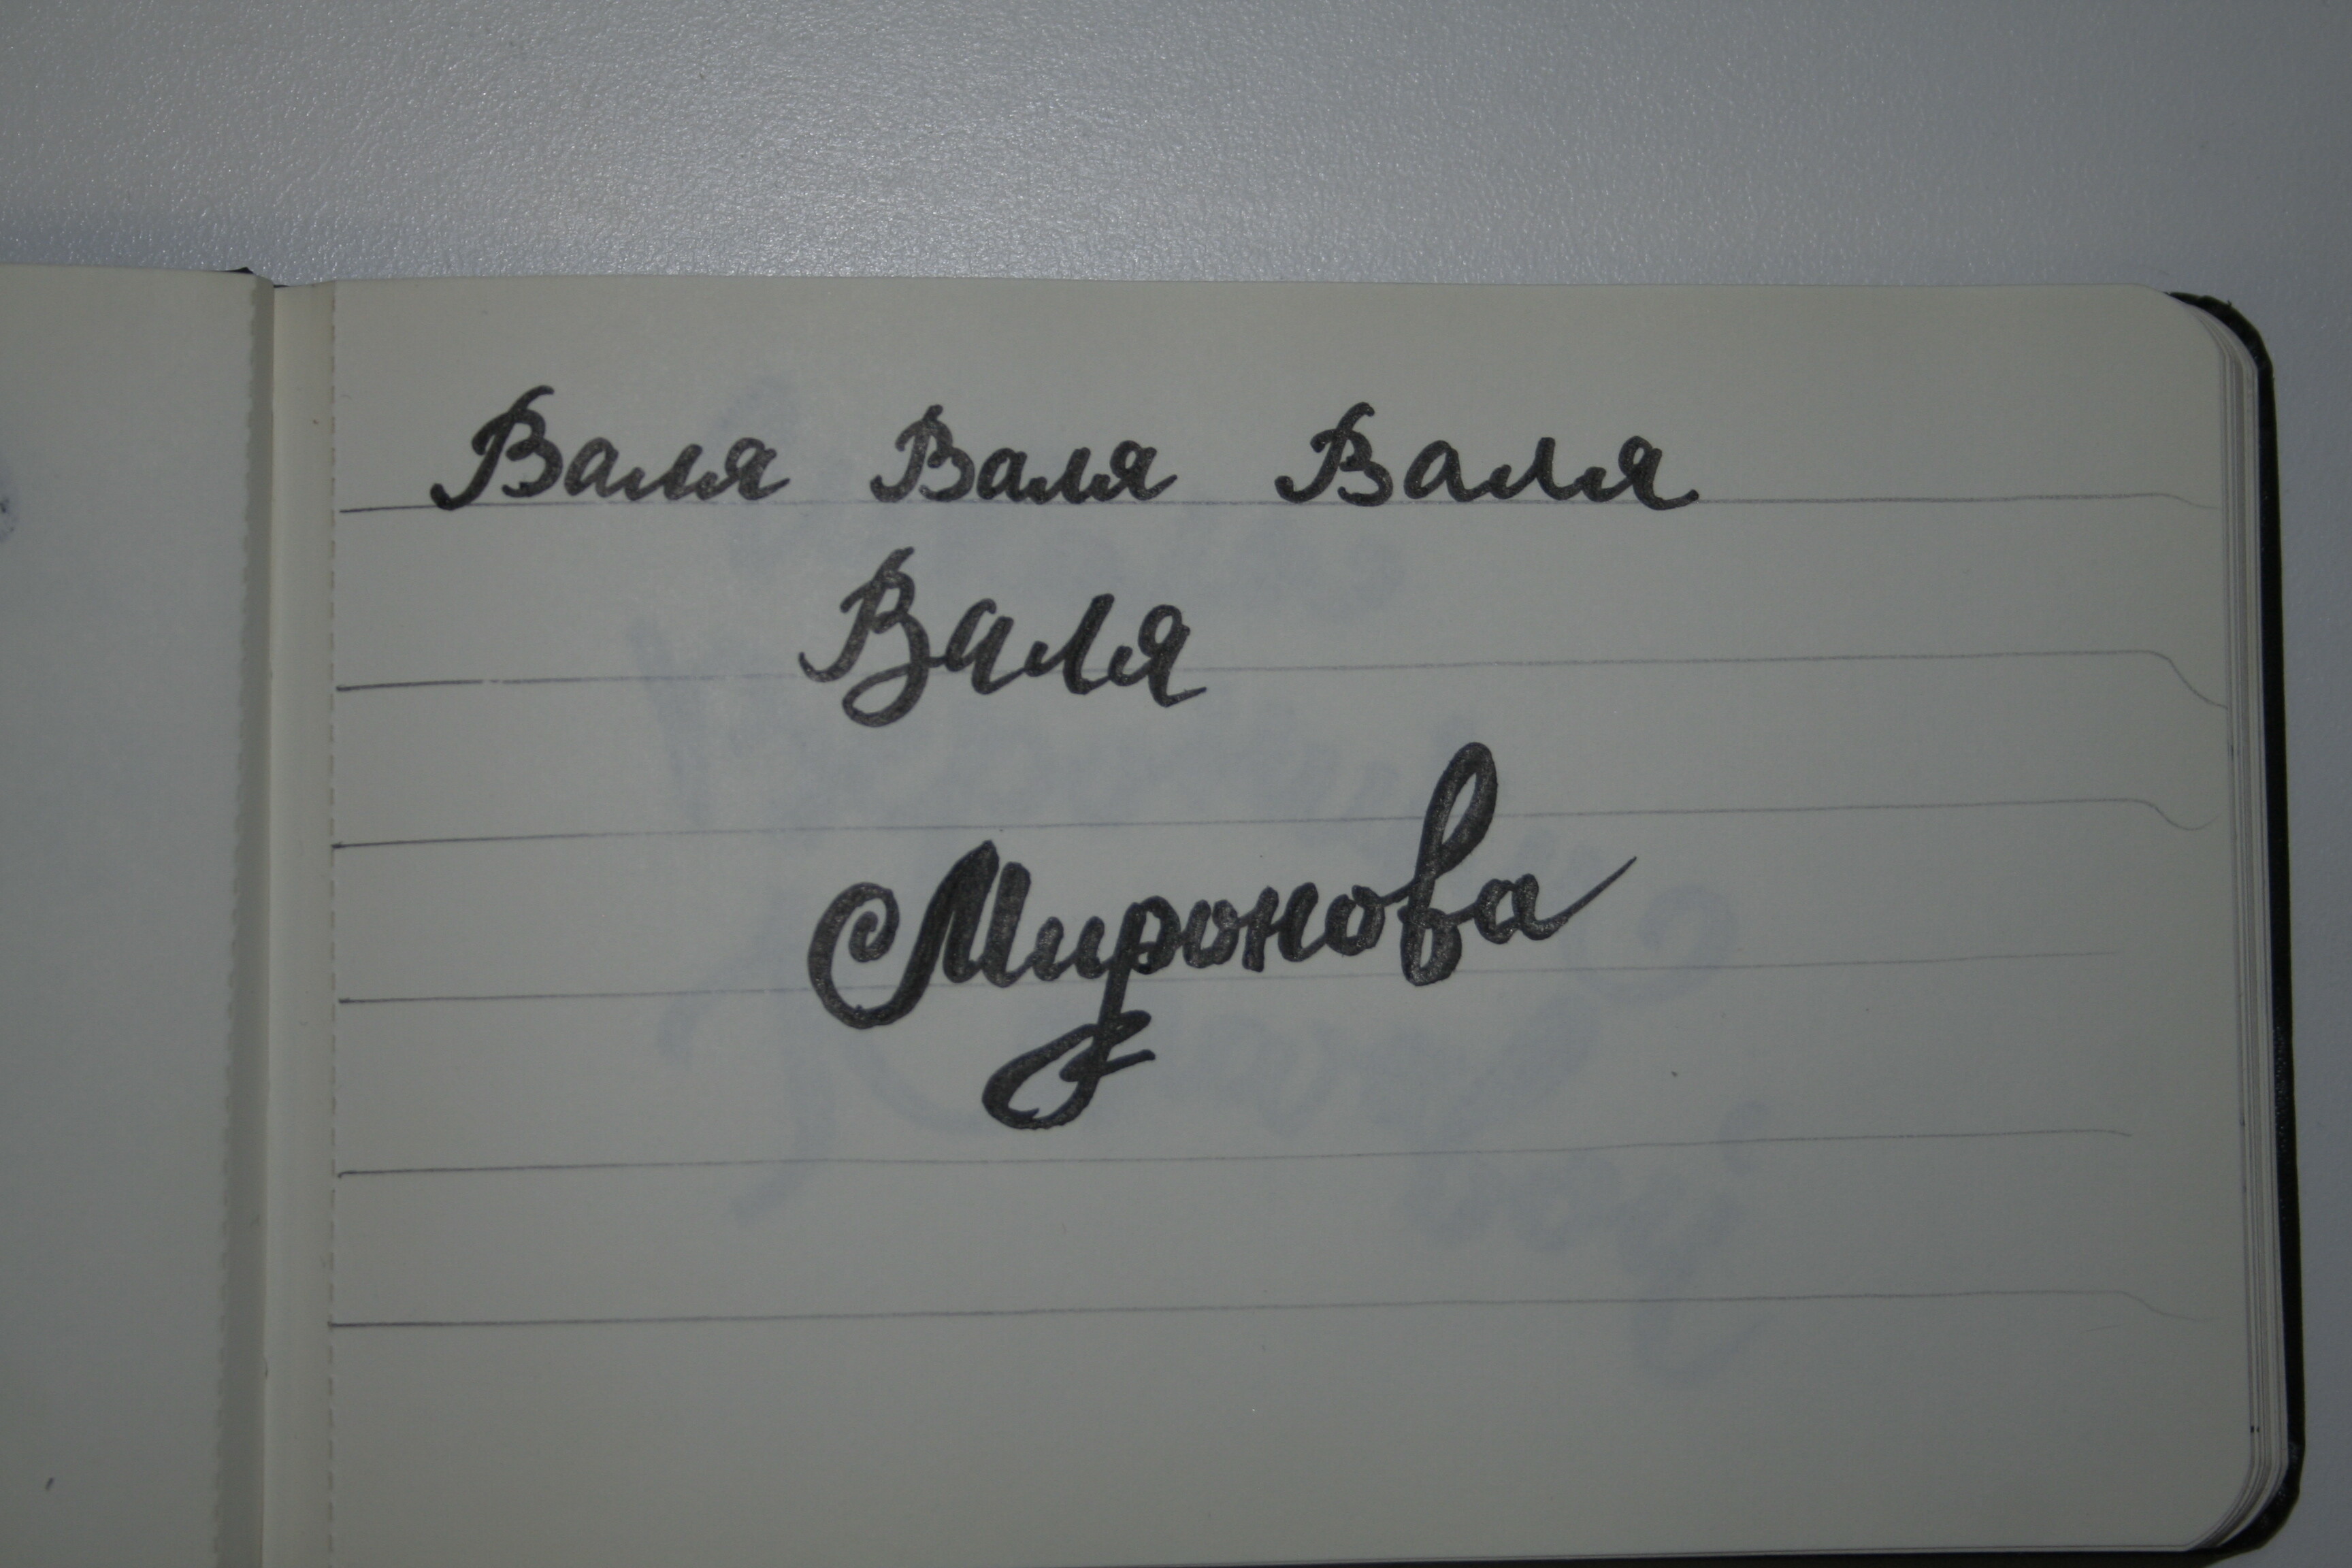 Валя Валя Валя
Валя
Миронова